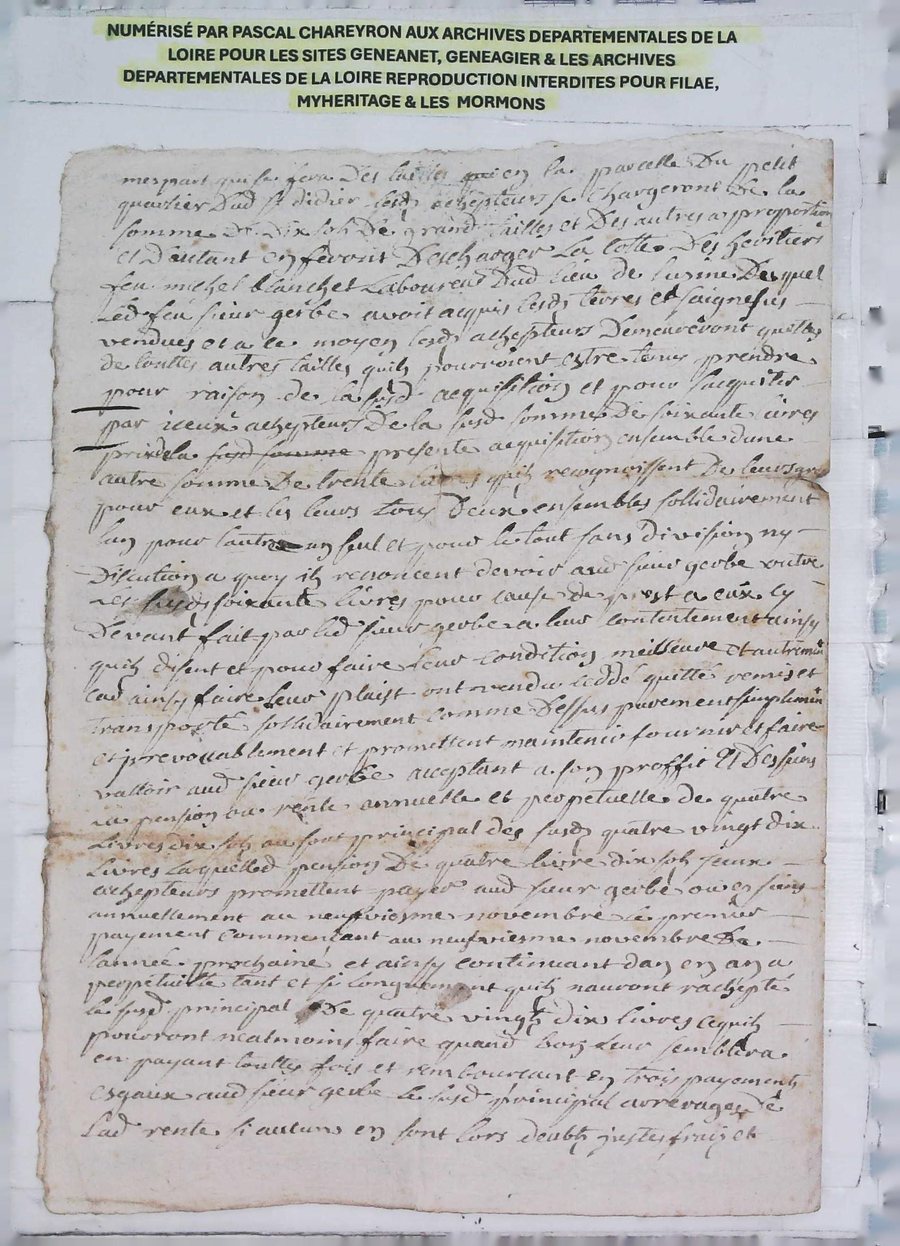 NUMÉRISÉ PAR PASCAL CHAREYRON AUX ARCHIVES DEPARTEMENTALES DE LA
LOIRE POUR LES SITES GENEANET, GENEAGIER & LES ARCHIVES
DEPARTEMENTALES DE LA LOIRE REPRODUCTION INTERDITES POUR FILAE,
MYHERITAGE & LES MORMONS
qui se fera des tailles en la parcelle du petit
quartier dud st didier lesd achepteurs se chargeront de la
somme de dix solz de grand tailles et des autres a proportion
et d'autant en feront descharger la cotte des heritiers
feu michel blanchet laboureur dud lieu de duquel
led feu sieur gerbe avoit acquis lesd terres et saignes sus
vendues et a ce moyen lesd achepteurs demeureront quittes
de touttes autres tailles quilz pourroient estre tenus prendre
pour raison de la susd acquisition et pour sacquiter
par iceux achepteurs de la susd somme de soixante livres
prix de la susd somme presente acquisition ensemble dune
autre somme de trente livres quilz recognoissent de leurs gre
pour eux et les leurs tous deux ensembles sollidairement
lun pour lautre un seul et pour le tout sans division ny
discution a quoy ilz renoncent devoir aud sieur gerbe outre
les susds soixante livres pour cause de prest a eux cy
devant fait par led sieur gerbe a leur contentement ainsy
quilz disent et pour faire leur condition meilleure et autremen
car ainsy faire leur plaist ont vendu cedde quitte remis et
transporte sollidairement comme dessus purement simplemen
et irrevocablement et promettent maintenir fournir et faire
valloir aud sieur gerbe acceptant a son proffit et des siens
la pension ou rente annuelle et perpetuelle de quatre
livres dix solz au sort principal des susd quatre vingt dix
livres laquelle pension de quatre livre dix solz iceux
achepteurs promettent payer aud sieur gerbe ou es siens
annuellement au neufviesme novembre le premier
payement commencant au neufviesme novembre de
lannee prochaine et ainsy continuant dan en an a
perpetuitte tant et si longuement quilz nauront rachepte
le susd principal de quatre vingtz dix livres ce quilz
pourront neatmoins faire quand bon leur semblera
en payant touttes fois et remboursant en trois payements
esgaux aud sieur gerbe le susd principal arrerages de
lad rente si aucuns en sont lors deubtz justes fraiz et